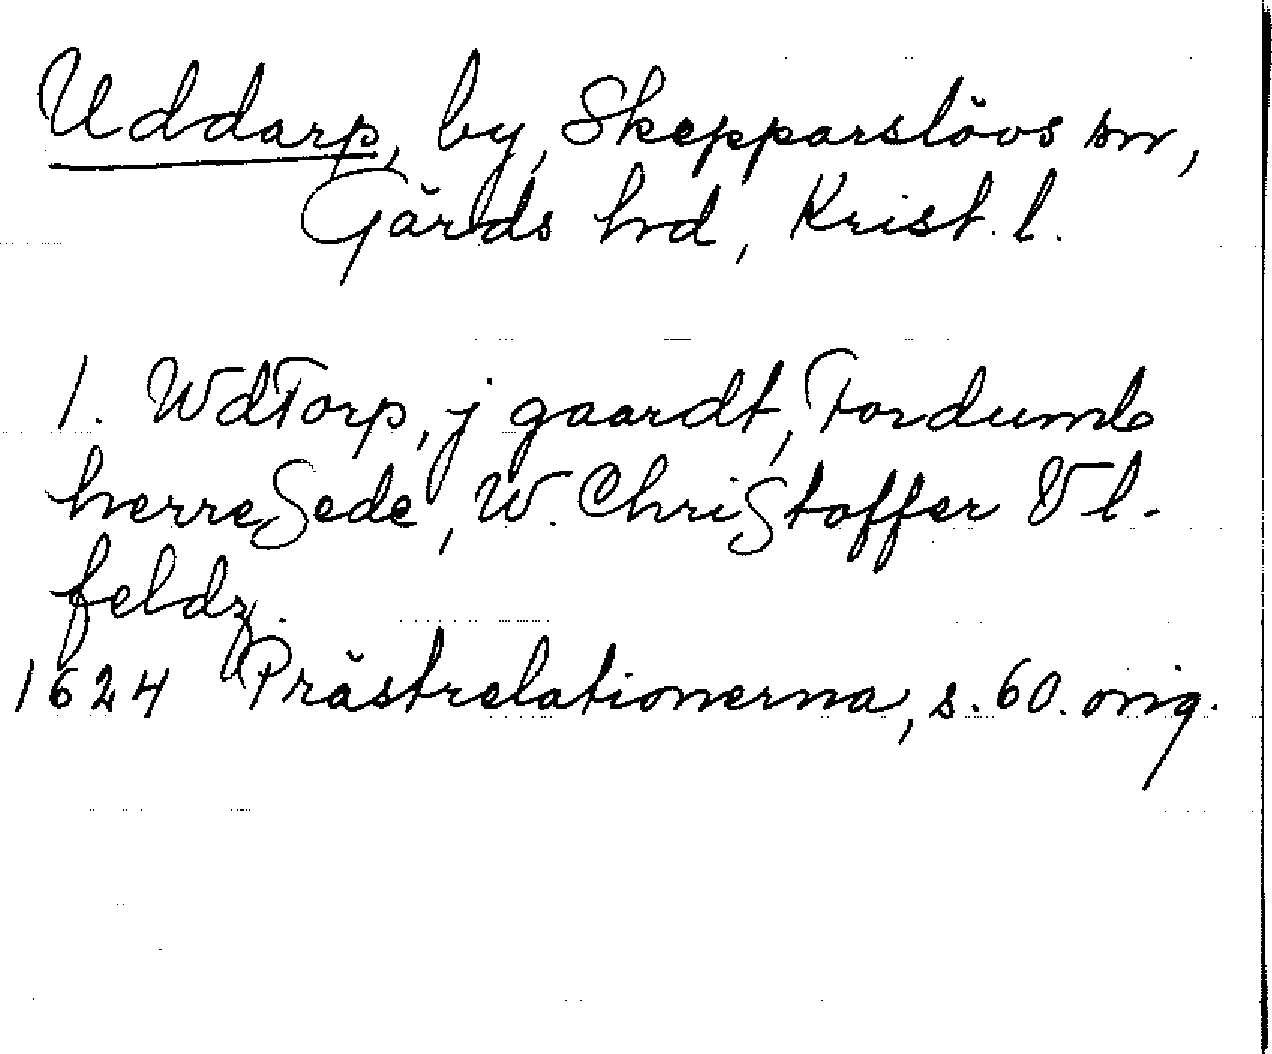 Uddarp, by, Skepparslövs sn,
Gärds hrd, Krist. l.
1. WdTorp, j gaardt, Fordumb
herreSede, W. ChriStoffer Vl-
feldz.
1624 Prästrelationerna, s. 60. orig.